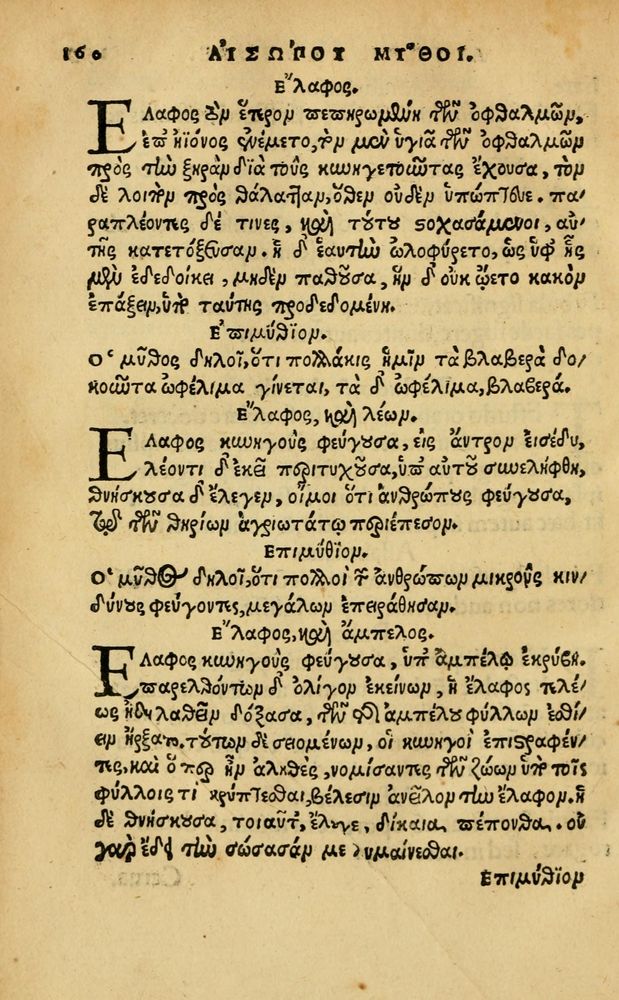 160 ΑΙ᾿ΣΩ´ΠΟΥ ΜΥ͂ΘΟΙ.
Ε῎λαφος.
ΕΛαφος τὸν ἕτερον πεπηρωμένη τῶν ὀφθαλμῶν,
ἐπ᾿ ἠϊόνος ἐνέμετο, τὸν μὲν ὑγιᾶ τῶν ὀφθαλμῶν
πρὸς τὴν ξηρὰν διὰ τοὺς κυνηγετοῦντας ἔχουσα, τὸν
δὲ λοιπὸν πρὸς θάλατταν, ὅθεν οὐδὲν ὑπώπτευε. πα/
ραπλέοντες δέ τινες, καὶ τούτου στοχασάμενοι, αὐ/
τῆς κατετόξευσαν. ἡ δ᾿ ἑαυτὴν ὠλοφύρετο, ὡς ὑφ᾿ ἧς
μὲν ἐδεδοίκει, μηδὲν παθοῦσα, ἣν δ᾿ οὐκ ᾤετο κακὸν
ἐπάξειν, ὑπὸ ταύτης προδεδομένη.
Ε᾿πιμύθϊον.
Ο῾ μῦθος δηλοῖ, ὅτι πολλάκις ἡμῖν τὰ βλαβερὰ δο/
κοῦντα ὠφέλιμα γίνεται, τὰ δ᾿ ὠφέλιμα, βλαβερά.
Ε῎λαφος, καὶ λέων.
ΕΛαφος κυνηγοὺς φεύγουσα, εἰς ἄντρον εἰσέδυ,
λέοντι δ᾿ ἐκεῖ περιτυχοῦσα, ὑπ᾿ αὐτοῦ συνελήφθη,
θνήσκουσα δ᾿ ἔλεγεν, οἴμοι ὅτι ἀνθρώπους φεύγουσα,
τῷ τῶν θηρίων ἀγριωτάτῳ περιέπεσον.
Επιμύθϊον.
Ο῾ μῦθος δηλοῖ, ὅτι πολλοὶ τῶν ἀνθρώπων μικροὺς κιν/
δύνους φεύγοντες, μεγάλων ἐπειράθησαν.
Ε῎λαφος, καὶ ἄμπελος.
ΕΛαφος κυνηγοὺς φεύγουσα, ὑπ᾿ ἀμπέλῳ ἐκρύβη.
παρελθόντων δ᾿ ὀλίγον ἐκείνων, ἡ ἔλαφος τελέ/
ως ἤδη λαθεῖν δόξασα, τῶν τῆς ἀμπέλου φύλλων ἐσθί/
ειν ἤρξατο. τούτων δὲ σειομένων, οἱ κυνηγοὶ ἐπιστραφέν/
τες, καὶ ὅπερ ἦν ἀληθὲς, νομίσαντες τῶν ζώων ὑπὸ τοῖς
φύλλοις τὶ κρύπτεσθαι, βέλεσιν ἀνεῖλον τὴν ἔλαφον. ἡ
δὲ θνήσκουσα, τοιαῦτ᾿ ἔλεγε, δίκαια πέπονθα. οὐ
γὰρ ἔδει τὴν σώσασάν με λυμαίνεσθαι.
Επιμύθϊον